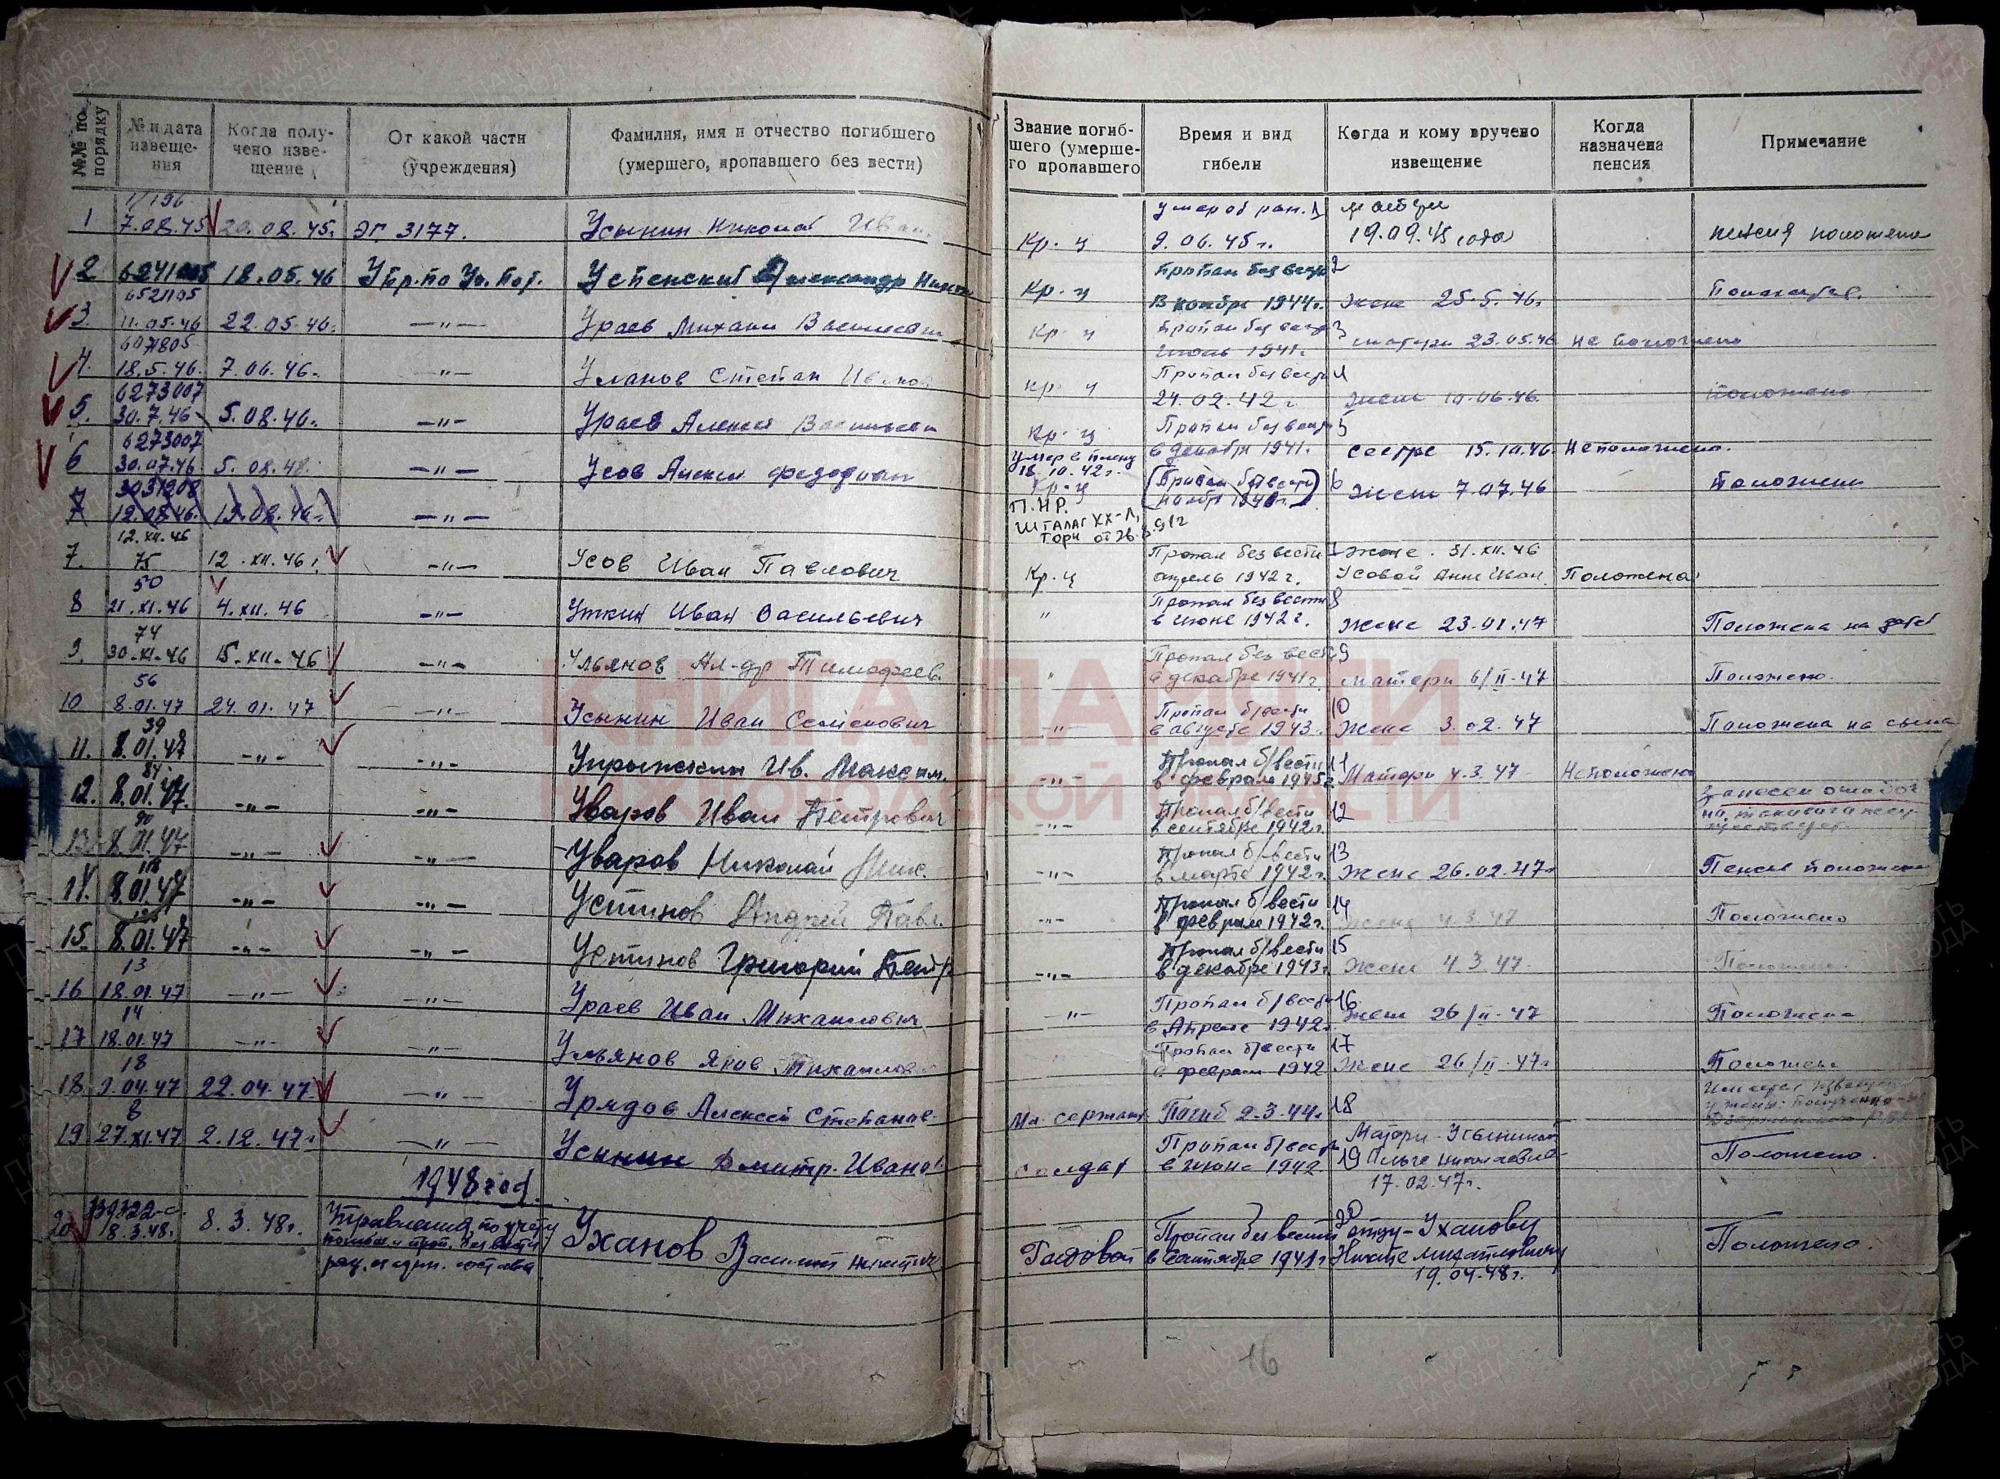 №№ по порядку
№ и дата извещения
Когда получено извещение
От какой части (учреждения)
Фамилия, имя и отчество погибшего (умершего, пропавшего без вести)
Звание погибшего (умершего пропавшего
Время и вид гибели
Когда и кому вручено извещение
Когда назначена пенсия
Примечание
1 7.08.45 20.08.45. ЭГ. 3177. Усынин Николай Иван. Кр-ц умер от ран. 9.06.45г. матери 19.09.45 года
2 18.05.46 Успенский Александр Кр-ц Пропал без вести В ноябре 1944г. жене 25.5.46г
3. 6521105 11.05.46 22.05.46. —"— Ураев Михаил Васильевич Кр-ц Пропал без вести июль 1941г. 3 матери 23.05.46 не положено
4. 18.5.46. 7.06.46. —"— Уланов Степан Иванов Кр-ц Пропал без вести 24.02.42г 4 жене 10.06.46. положено
5. 6273007 30.7.46 5.08.46. —"— Ураев Алексей Васильевич Кр-ц Пропал без вести в декабре 1941г. 5 сестре 15.10.46 Не положено.
6 6273007 30.07.46. 5.08.46. —"— Усов умер в плену 18.10.42г. Кр-ц (Пропал б/вести ноябр 1941г.) 6 жене 7.07.46 Положено
7 12.08.46. —"— П.НР. Шталаг XX-А, Торн
7. 12.XII.46 75 12.XII.46г. —"— Усов Иван Павлович Кр-ц Пропал без вести апрель 1942г. 7 Жене. 31.XII.46 Усовой Анне Иван. Положена
8 50 21.XI.46 4.XII.46 —"— Уткин Иван Васильевич " Пропал без вести в июне 1942г. 8 Жене 23.01.47 Положена на детей
9. 74 30.XI.46 15.XII.46 —"— Ульянов Ал-др Тимофеев. " Пропал без вести в декабре 1941г. 9 матери 6/II-47 Положено.
10 56 8.01.47 24.01.47 —"— Усынин Иван Семенович —"— Пропал б/вести в августе 1943г. 10 Жене 3.02.47 Положена на сына
11. 39 8.01.47 —"— —"— Ив. Максим. —"— Пропал б/вести в феврале 1945г. 11 Матери 4.3.47 Не положено
12. 84 8.01.47. —"— —"— Уваров Иван Петрович —"— Пропал б/вести в сентябре 1942г. 12 Занесен ошибоч
13. 90 8.01.47 —"— —"— Уваров Николай Мих. —"— Пропал б/вести в марте 1942г. 13 Жене 26.02.47г Пенсия положена
14. 118 8.01.47 —"— —"— Устинов Андрей Павл. —"— Пропал б/вести в феврале 1942г. 14 Жене 4.3.47 Положено
15. 8.01.47 —"— —"— Устинов Григорий Петр —"— Пропал б/вести в декабре 1943г 15 Жене 4.3.47. Положено.
16 13 18.01.47 —"— —"— Ураев Иван Михайлович —"— Пропал б/вести в Апреле 1942г. 16. Жене 26/II-47 Положена
17 14 18.01.47 —"— —"— Ульянов Яков Михайлов Пропал б/вести в феврале 1942 17 Жене 26/II-47г Положена
18. 18 9.04.47 22.04.47 —"— Урядов Алексей Степанов. Мл. сержант Погиб 2.3.44г. 18
19 8 27.XI.47 2.12.47г —"— Усынин Дмитр. Иванов. солдат Пропал б/вести в июне 1942 19 Матери-Усыниной Ольге Николаевне 17.02.47г. Положено.
1948 год.
20 18.3.48г. 8.3.48г. Управления по учету Уханов Василий Никитич Рядовой Пропал без вести в сентябре 1941г 20 отцу-Уханову Никите Михайловичу 19.04.48г. Положено.
16
КНИГА ПАМЯТИ
НИЖЕГОРОДСКОЙ ОБЛАСТИ
ПАМЯТЬ НАРОДА